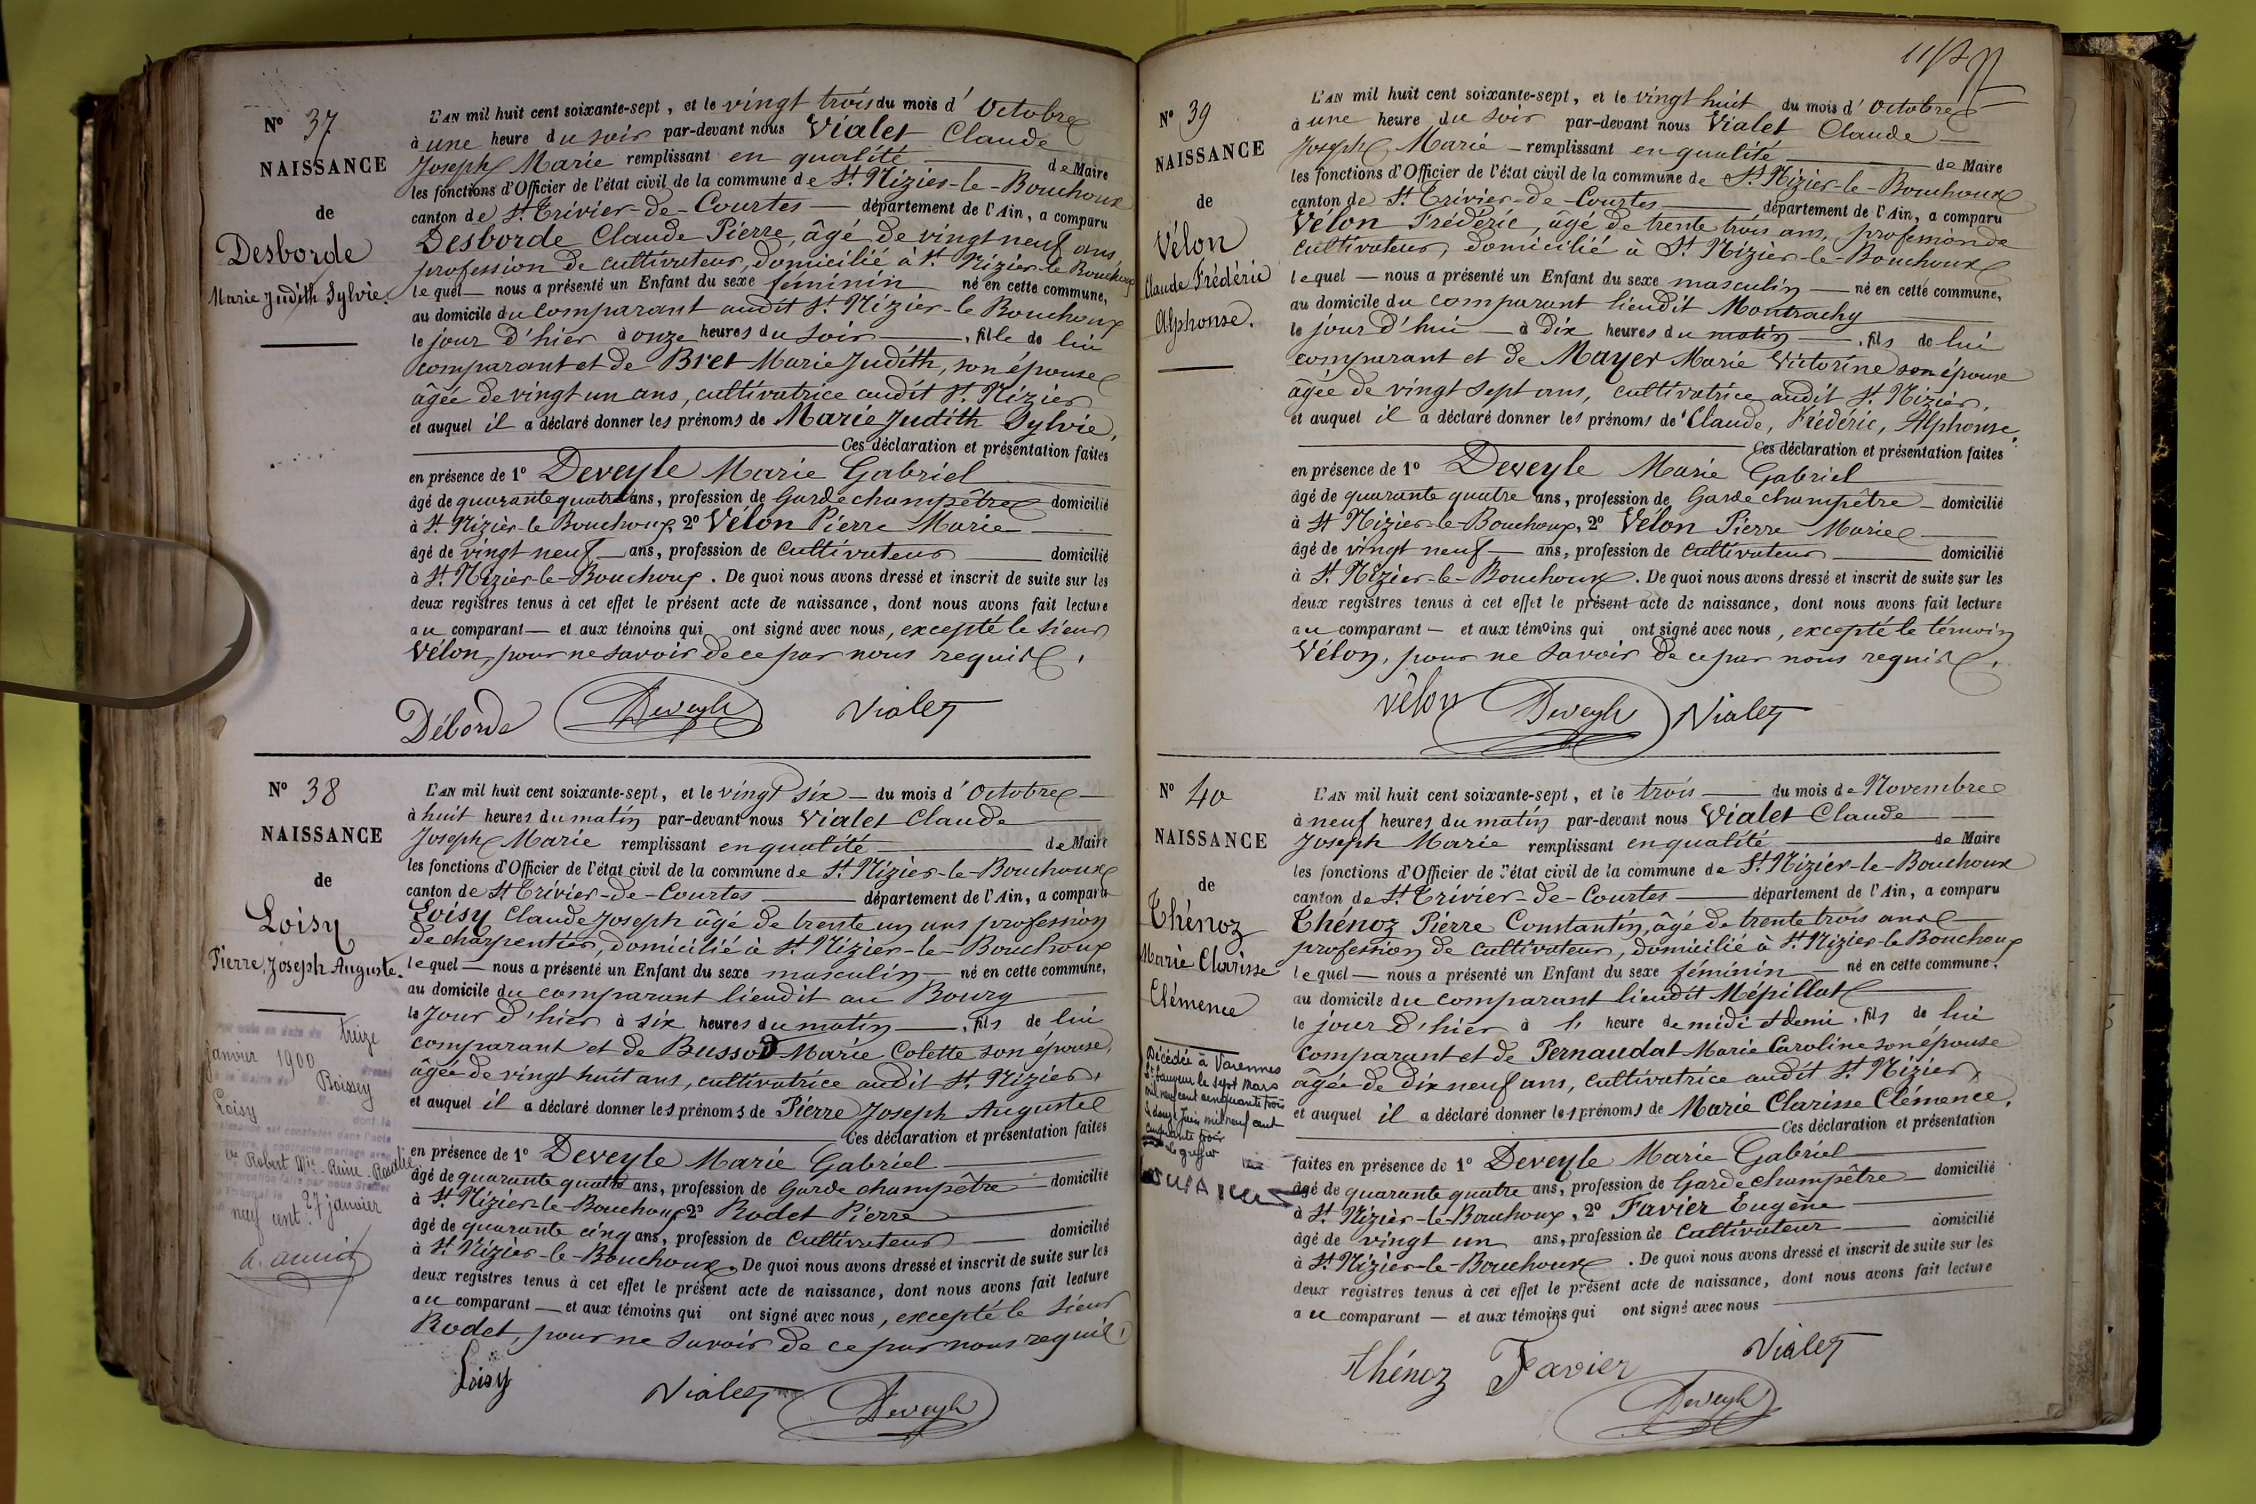 N° 37
NAISSANCE
de
Desborde
Marie Judith Sylvie.
L'AN mil huit cent soixante-sept, et le vingt trois du mois d'Octobre
à une heure du soir par-devant nous Vialet Claude
Joseph Marie remplissant en qualité de Maire
les fonctions d'Officier de l'état civil de la commune de St. Nizier-le-Bouchoux
canton de St. Trivier-de-Courtes département de l'Ain, a comparu
Desborde Claude Pierre, âgé de vingt neuf ans,
profession de cultivateur, domicilié à St. Nizier-le-Bouchoux
lequel nous a présenté un Enfant du sexe féminin né en cette commune,
au domicile du comparant audit St. Nizier-le Bouchoux
le jour d'hier à onze heures du soir, fille de lui
comparant et de Bret Marie Judith, son épouse
âgée de vingt un ans, cultivatrice audit St. Nizier
et auquel il a déclaré donner les prénoms de Marie Judith Sylvie,
Ces déclaration et présentation faites
en présence de 1° Deveyle Marie Gabriel
âgé de quarante quatre ans, profession de Garde champêtre domicilié
à St. Nizier-le Bouchoux 2° Vélon Pierre Marie
âgé de vingt neuf ans, profession de cultivateur domicilié
à St. Nizier-le-Bouchoux. De quoi nous avons dressé et inscrit de suite sur les
deux registres tenus à cet effet le présent acte de naissance, dont nous avons fait lecture
au comparant et aux témoins qui ont signé avec nous, excepté le sieur
Vélon, pour ne savoir de ce par nous requis.
Déborde Deveyle Vialet
N° 38
NAISSANCE
de
Loisy
Pierre, Joseph Auguste.
treize
janvier 1900
Boissey
Loisy
Robert Mie-Reine-Rosalie
neuf cent. 27 janvier
L'AN mil huit cent soixante-sept, et le vingt six du mois d'Octobre
à huit heures du matin par-devant nous Vialet Claude
Joseph Marie remplissant en qualité de Maire
les fonctions d'Officier de l'état civil de la commune de St. Nizier-le-Bouchoux
canton de St Trivier-de-Courtes département de l'Ain, a comparu
Loisy Claude Joseph âgé de trente un ans profession
de charpentier, domicilié à St. Nizier-le-Bouchoux
lequel nous a présenté un Enfant du sexe masculin né en cette commune,
au domicile du comparant lieudit au Bourg
le jour d'hier à six heures du matin, fils de lui
comparant et de Bussod Marie Colette son épouse,
âgée de vingt huit ans, cultivatrice audit St. Nizier,
et auquel il a déclaré donner les prénoms de Pierre Joseph Auguste
Ces déclaration et présentation faites
en présence de 1° Deveyle Marie Gabriel
âgé de quarante quatre ans, profession de Garde champêtre domicilié
à St. Nizier-le-Bouchoux 2° Rodet Pierre
âgé de quarante cinq ans, profession de Cultivateur domicilié
à St. Nizier-le-Bouchoux. De quoi nous avons dressé et inscrit de suite sur les
deux registres tenus à cet effet le présent acte de naissance, dont nous avons fait lecture
au comparant et aux témoins qui ont signé avec nous, excepté le sieur
Rodet, pour ne savoir de ce par nous requis,
Loisy Vialet Deveyle
N° 39
NAISSANCE
de
Vélon
Claude Frédéric
Alphonse.
L'AN mil huit cent soixante-sept, et le vingt huit du mois d'Octobre
à une heure du soir par-devant nous Vialet Claude
Joseph Marie remplissant en qualité de Maire
les fonctions d'Officier de l'état civil de la commune de St. Nizier-le-Bouchoux
canton de St. Trivier-de-Courtes département de l'Ain, a comparu
Vélon Frédéric, âgé de trente trois ans, profession de
cultivateur, domicilié à St. Nizier-le-Bouchoux
lequel nous a présenté un Enfant du sexe masculin né en cette commune,
au domicile du comparant lieudit Montrachy
le jour d'hui à dix heures du matin, fils de lui
comparant et de Mayer Marie Victorine son épouse
âgée de vingt sept ans, cultivatrice audit St. Nizier,
et auquel il a déclaré donner les prénoms de Claude, Frédéric, Alphonse,
Ces déclaration et présentation faites
en présence de 1° Deveyle Marie Gabriel
âgé de quarante quatre ans, profession de Garde champêtre domicilié
à St Nizier-le-Bouchoux, 2° Vélon Pierre Marie
âgé de vingt neuf ans, profession de Cultivateur domicilié
à St. Nizier-le-Bouchoux. De quoi nous avons dressé et inscrit de suite sur les
deux registres tenus à cet effet le présent acte de naissance, dont nous avons fait lecture
au comparant et aux témoins qui ont signé avec nous, excepté le témoin
Vélon, pour ne savoir de ce par nous requis.
Vélon Deveyle Vialet
N° 40
NAISSANCE
de
Thénoz
Marie Clarisse
Clémence
Décédée à Varennes
St Sauveur le sept mars
mil neuf cent cinquante trois
le douze juin mil neuf cent
cinquante trois
le greffier
L'AN mil huit cent soixante-sept, et le trois du mois de Novembre
à neuf heures du matin par-devant nous Vialet Claude
Joseph Marie remplissant en qualité de Maire
les fonctions d'Officier de l'état civil de la commune de St. Nizier-le-Bouchoux
canton de St. Trivier-de-Courtes département de l'Ain, a comparu
Thénoz Pierre Constantin, âgé de trente trois ans
profession de Cultivateur, domicilié à St. Nizier-le Bouchoux
lequel nous a présenté un Enfant du sexe féminin né en cette commune,
au domicile du comparant lieudit Mépillat
le jour d'hier à l' heure de midi et demi, fils de lui
comparant et de Pernaudat Marie Caroline son épouse
âgée de dix neuf ans, cultivatrice audit St. Nizier,
et auquel il a déclaré donner les prénoms de Marie Clarisse Clémence,
Ces déclaration et présentation
faites en présence de 1° Deveyle Marie Gabriel
âgé de quarante quatre ans, profession de Garde champêtre domicilié
à St. Nizier-le-Bouchoux, 2° Favier Eugène
âgé de vingt un ans, profession de Cultivateur domicilié
à St. Nizier-le-Bouchoux. De quoi nous avons dressé et inscrit de suite sur les
deux registres tenus à cet effet le présent acte de naissance, dont nous avons fait lecture
au comparant et aux témoins qui ont signé avec nous
Thénoz Favier Vialet
Deveyle